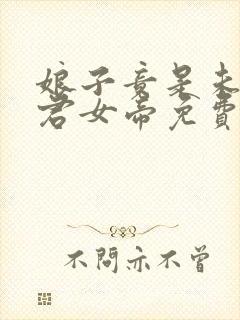 娘子竟是未
君女帝免費
不問亦不曾